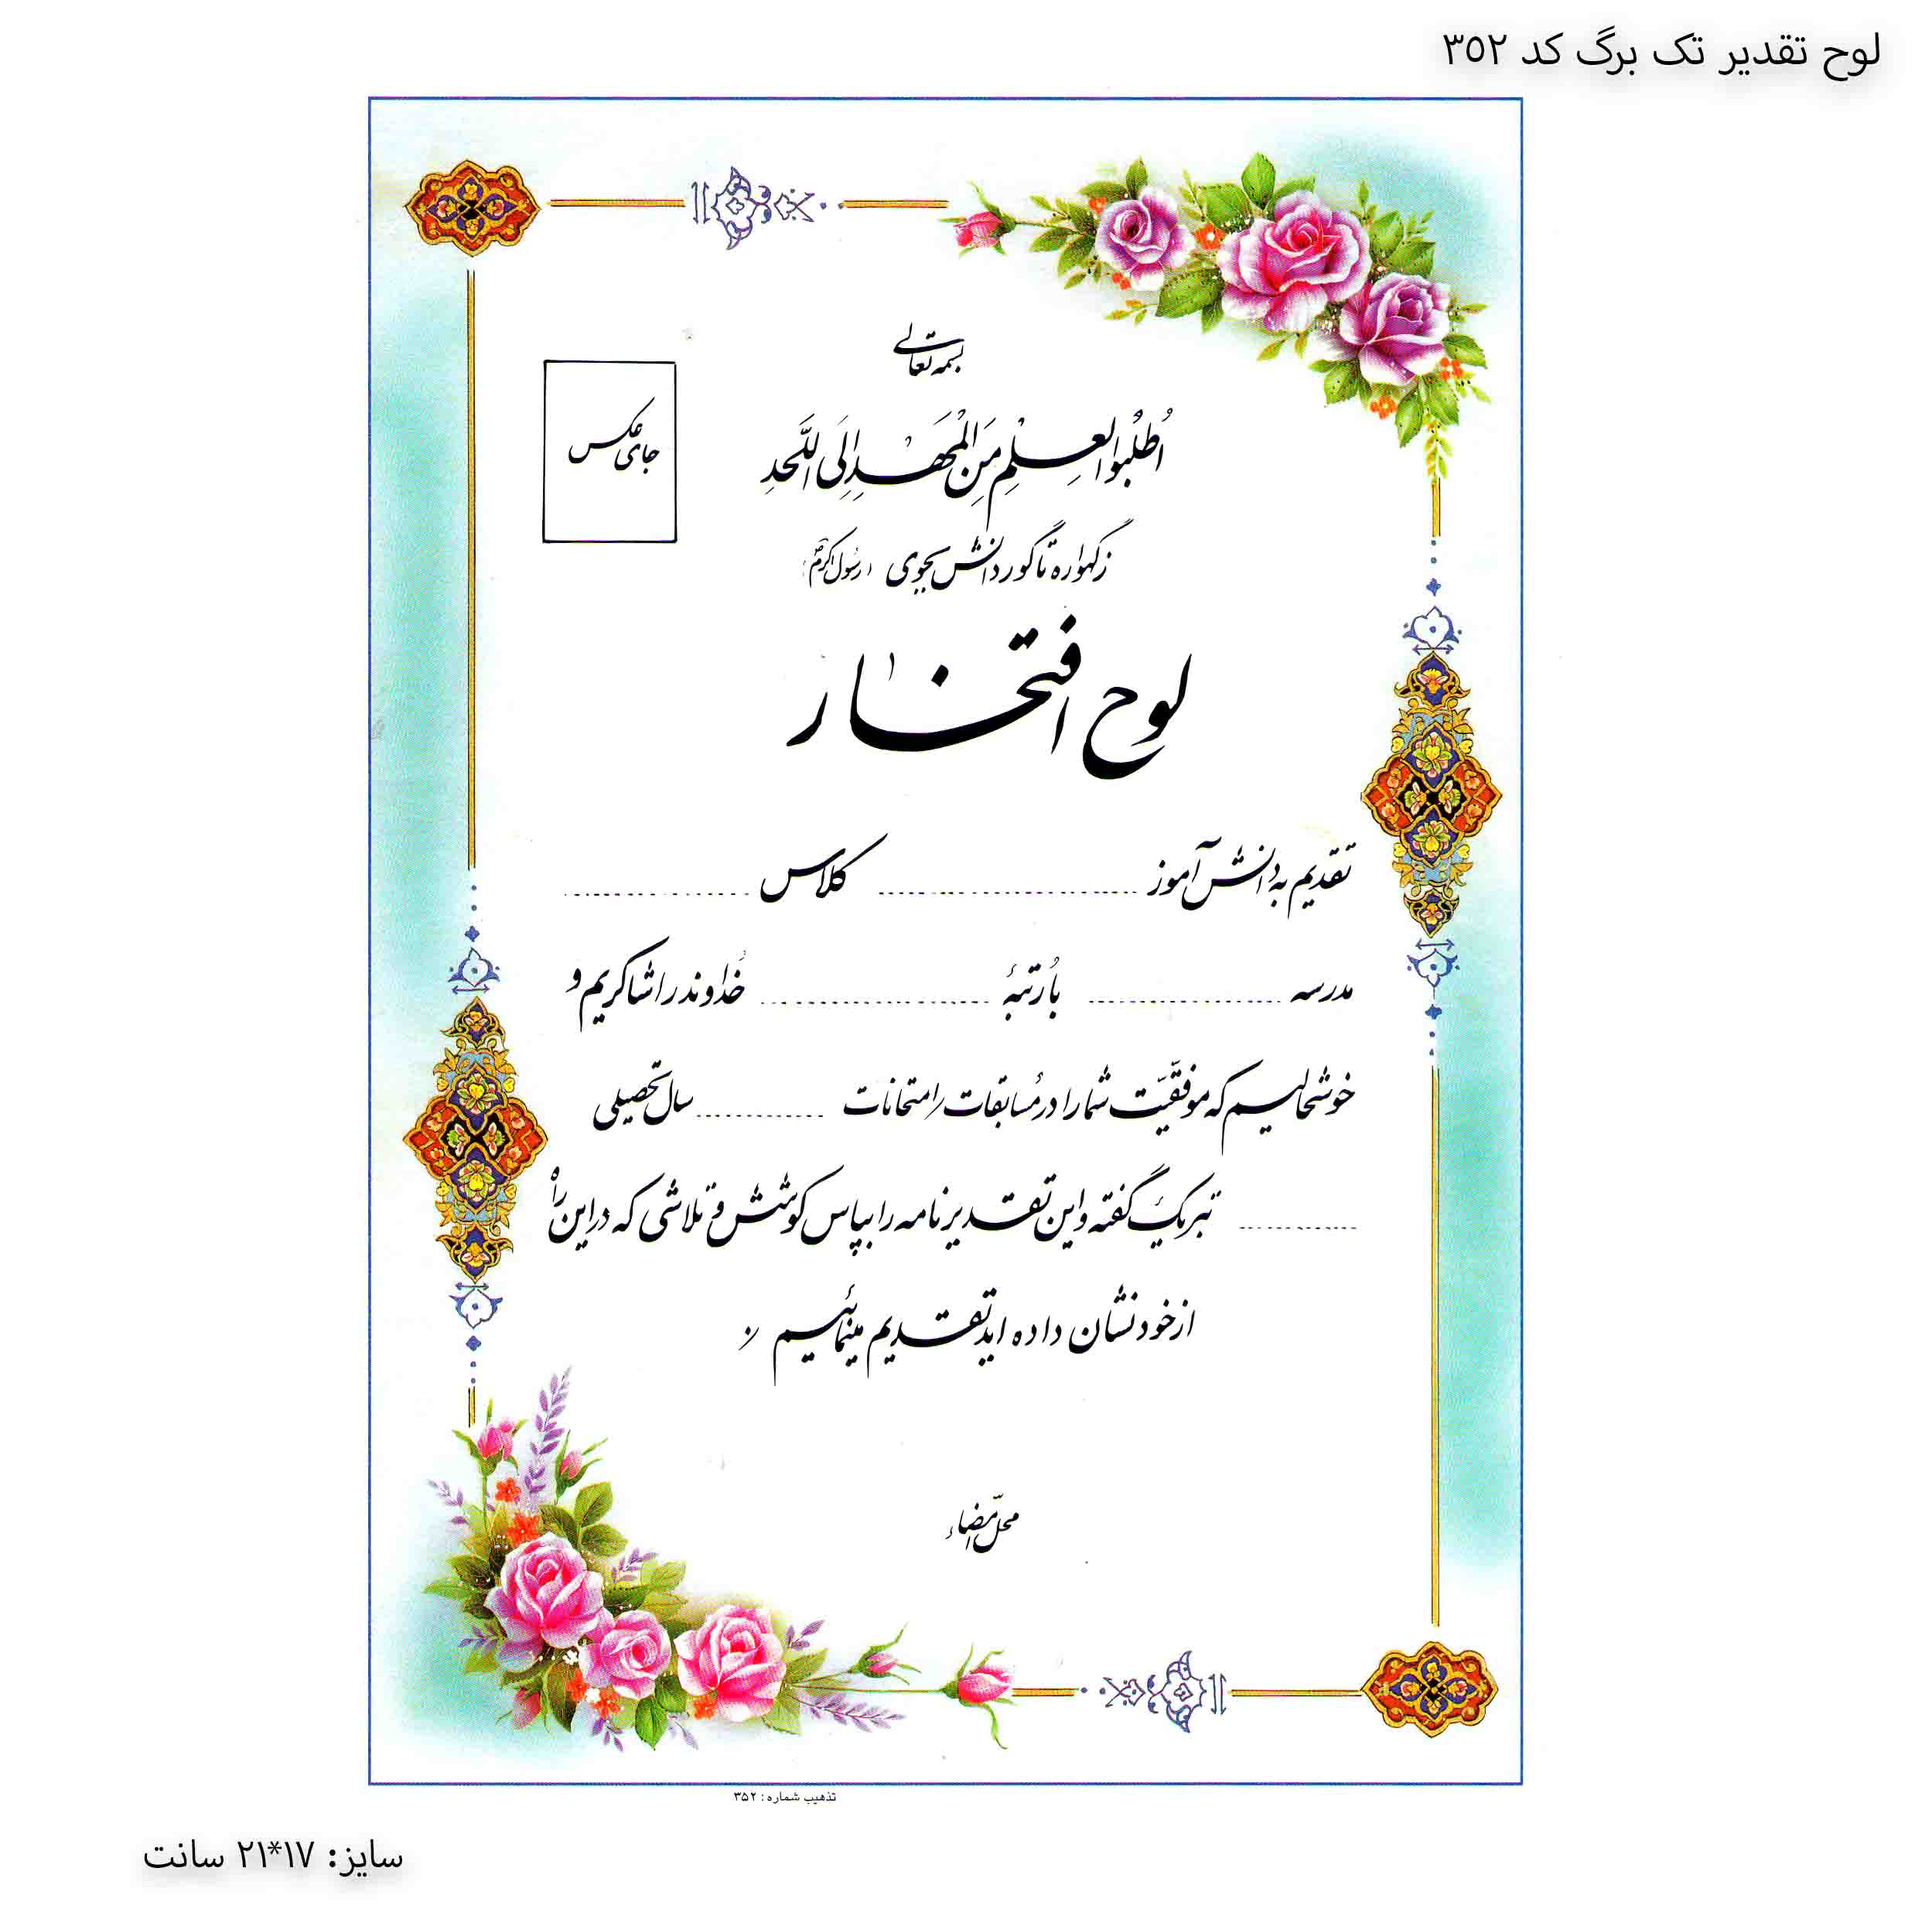 لوح تقدیر تک برگ کد ۳۵۲
بسمه تعالی
جای عکس
اُطْلُبُوا العِلْمِ مِنَ الْمَهْدِ اِلَی اللَّحَدِ
ز گهواره تا گور دانش بجوی (رسول اکرم ص)
لوح افتخار
تقدیم به دانش آموز ........................ کلاس ........................
مدرسه ........................ با رُتبهٔ ........................ خداوند را شاکریم و
خوشحالیم که موفقیّت شما را در مُسابقات / امتحانات ............ سال تحصیلی
............ تبریک گفته و این تقدیر نامه را بپاس کوشش و تلاشی که در این راه
از خود نشان داده اید تقدیم مینمائیم .
محل امضاء
تذهیب شماره : ۳۵۲
سایز: ۱۷*۲۱ سانت